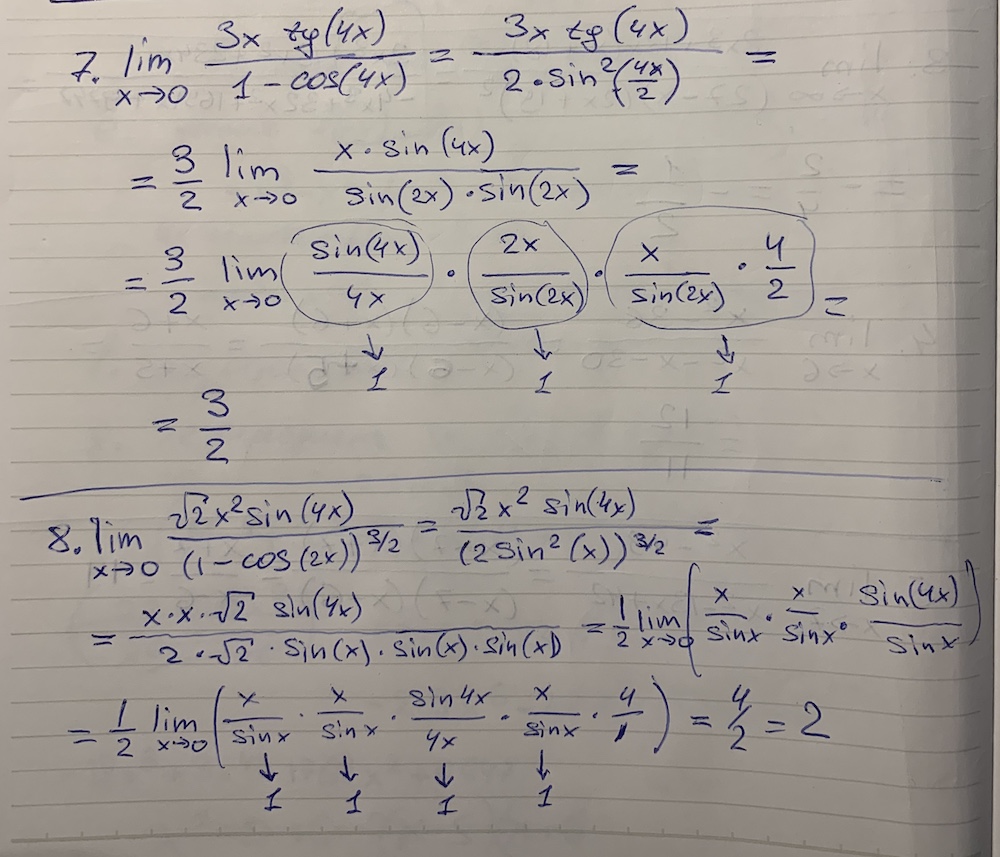 7. lim x→0 3x tg(4x) / 1 - cos(4x) = 3x tg(4x) / 2 · sin²(4x/2) =
= 3/2 lim x→0 x · sin(4x) / sin(2x) · sin(2x) =
= 3/2 lim x→0 sin(4x)/4x · 2x/sin(2x) · x/sin(2x) · 4/2 =
↓ 1 ↓ 1 ↓ 1
= 3/2
8. lim x→0 √2 x² sin(4x) / (1 - cos(2x))^3/2 = √2 x² sin(4x) / (2 sin²(x))^3/2 =
= x·x·√2 sin(4x) / 2·√2 · sin(x) · sin(x) · sin(x) = 1/2 lim x→0 (x/sinx · x/sinx · sin(4x)/sinx)
= 1/2 lim x→0 (x/sinx · x/sinx · sin4x/4x · x/sinx · 4/1) = 4/2 = 2
↓ 1 ↓ 1 ↓ 1 ↓ 1